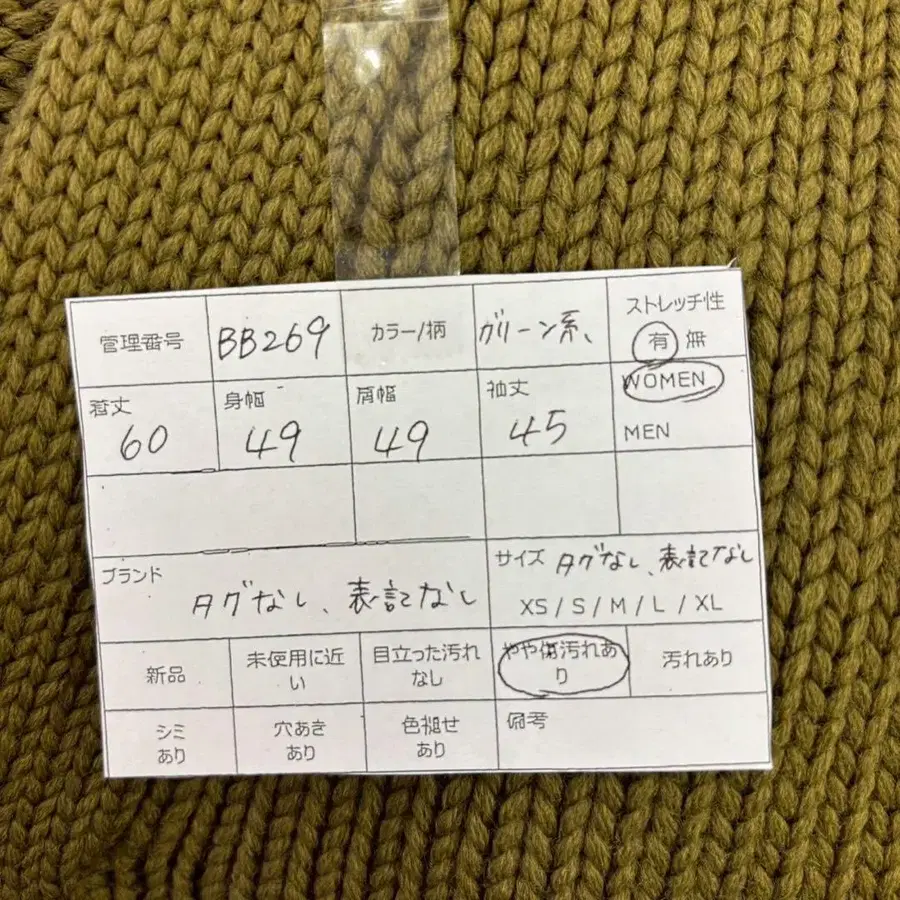 管理番号 BB269 カラー/柄 グリーン系、 ストレッチ性
有 無
着丈 身幅 肩幅 袖丈 WOMEN
60 49 49 45 MEN
ブランド サイズ タグなし、表記なし
タグなし、表記なし XS / S / M / L / XL
新品 未使用に近 目立った汚れ やや傷汚れあ 汚れあり
い なし り
シミ 穴あき 色褪せ 備考
あり あり あり